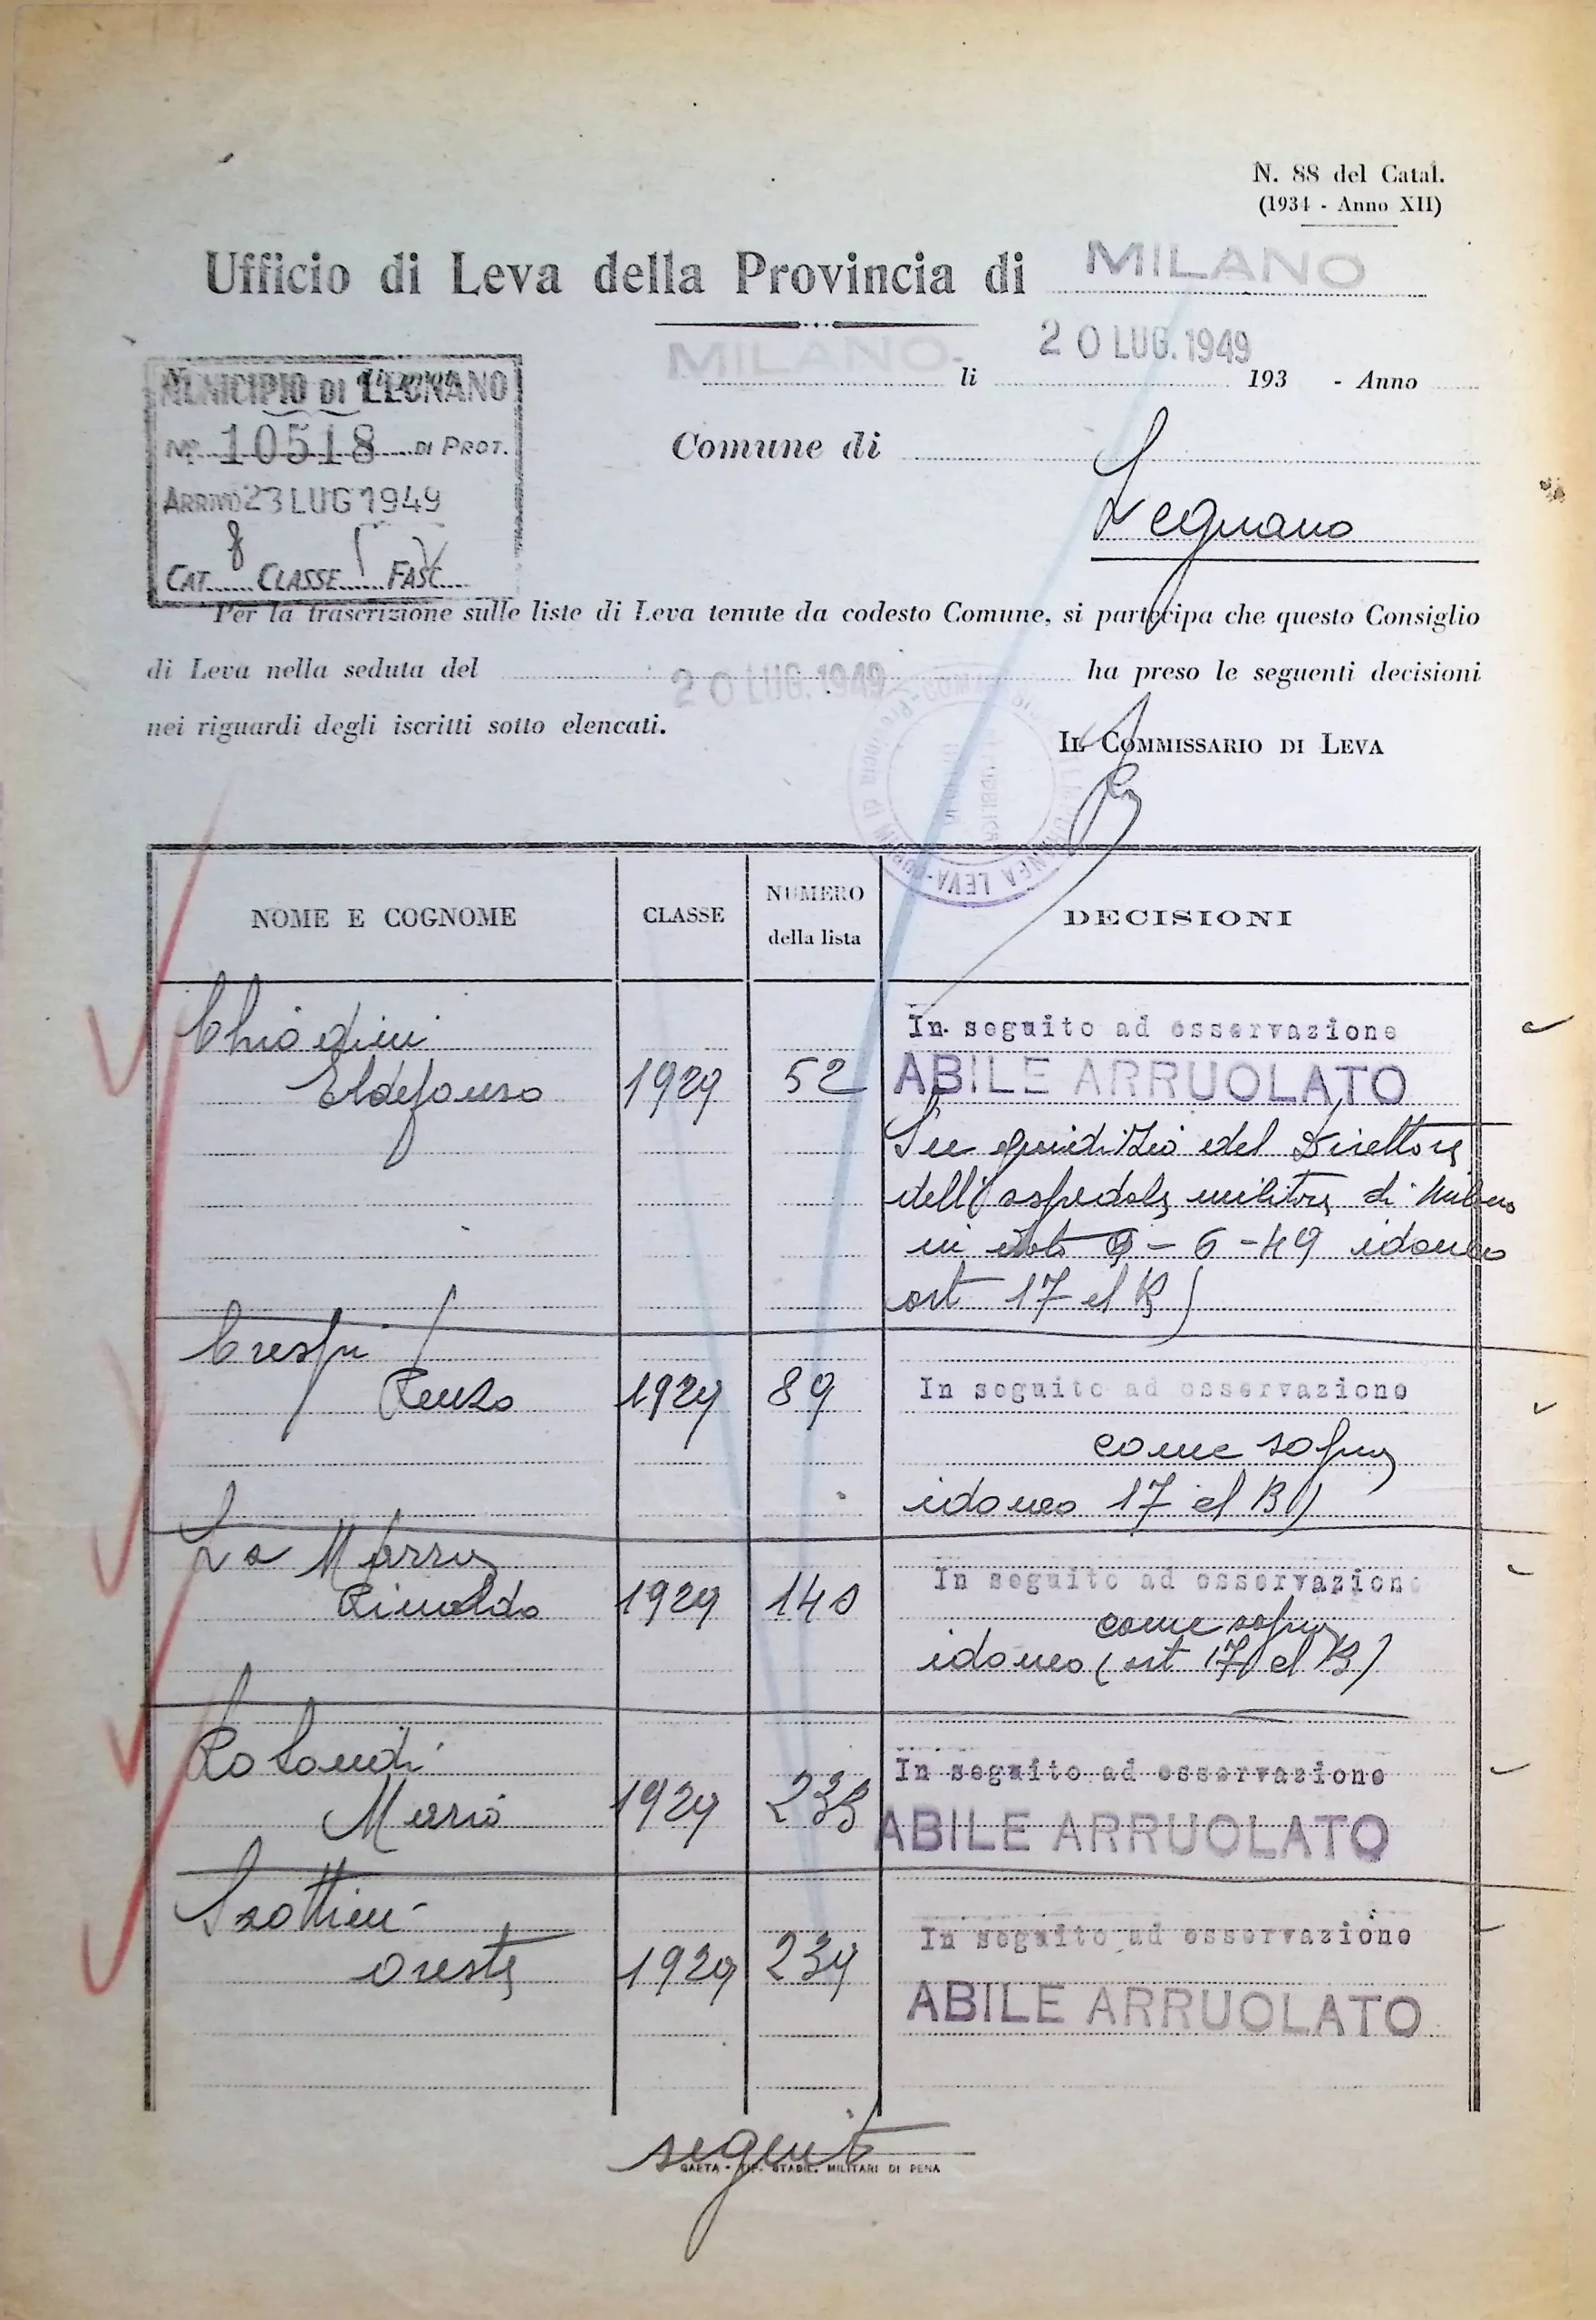 N. 88 del Catal.
(1934 - Anno XII)
Ufficio di Leva della Provincia di MILANO
MILANO. li 20 LUG. 1949 193 - Anno
MUNICIPIO DI LEGNANO
Nº 10518 DI PROT.
ARRIVO 23 LUG 1949
CAT. 8 CLASSE 1 FASC.
Comune di
Legnano
Per la trascrizione sulle liste di Leva tenute da codesto Comune, si partecipa che questo Consiglio
di Leva nella seduta del 20 LUG. 1949 ha preso le seguenti decisioni
nei riguardi degli iscritti sotto elencati.
IL COMMISSARIO DI LEVA
NOME E COGNOME CLASSE NUMERO della lista DECISIONI
Chiodini In seguito ad osservazione
Eldefonso 1929 52 ABILE ARRUOLATO
giudizio del Direttore
dell'ospedale militare di Milano
in data 9-6-49 idoneo
art 17 el B)
Crespi
Renzo 1929 89 In seguito ad osservazione
come sopra
idoneo 17 el B)
La Marra In seguito ad osservazione
Rinaldo 1929 140 come sopra
idoneo (art 17 el B)
Rolandi In seguito ad osservazione
Mario 1929 233 ABILE ARRUOLATO
In seguito ad osservazione
Oreste 1929 239 ABILE ARRUOLATO
segue
GAETA - TIP. STABIL. MILITARI DI PENA